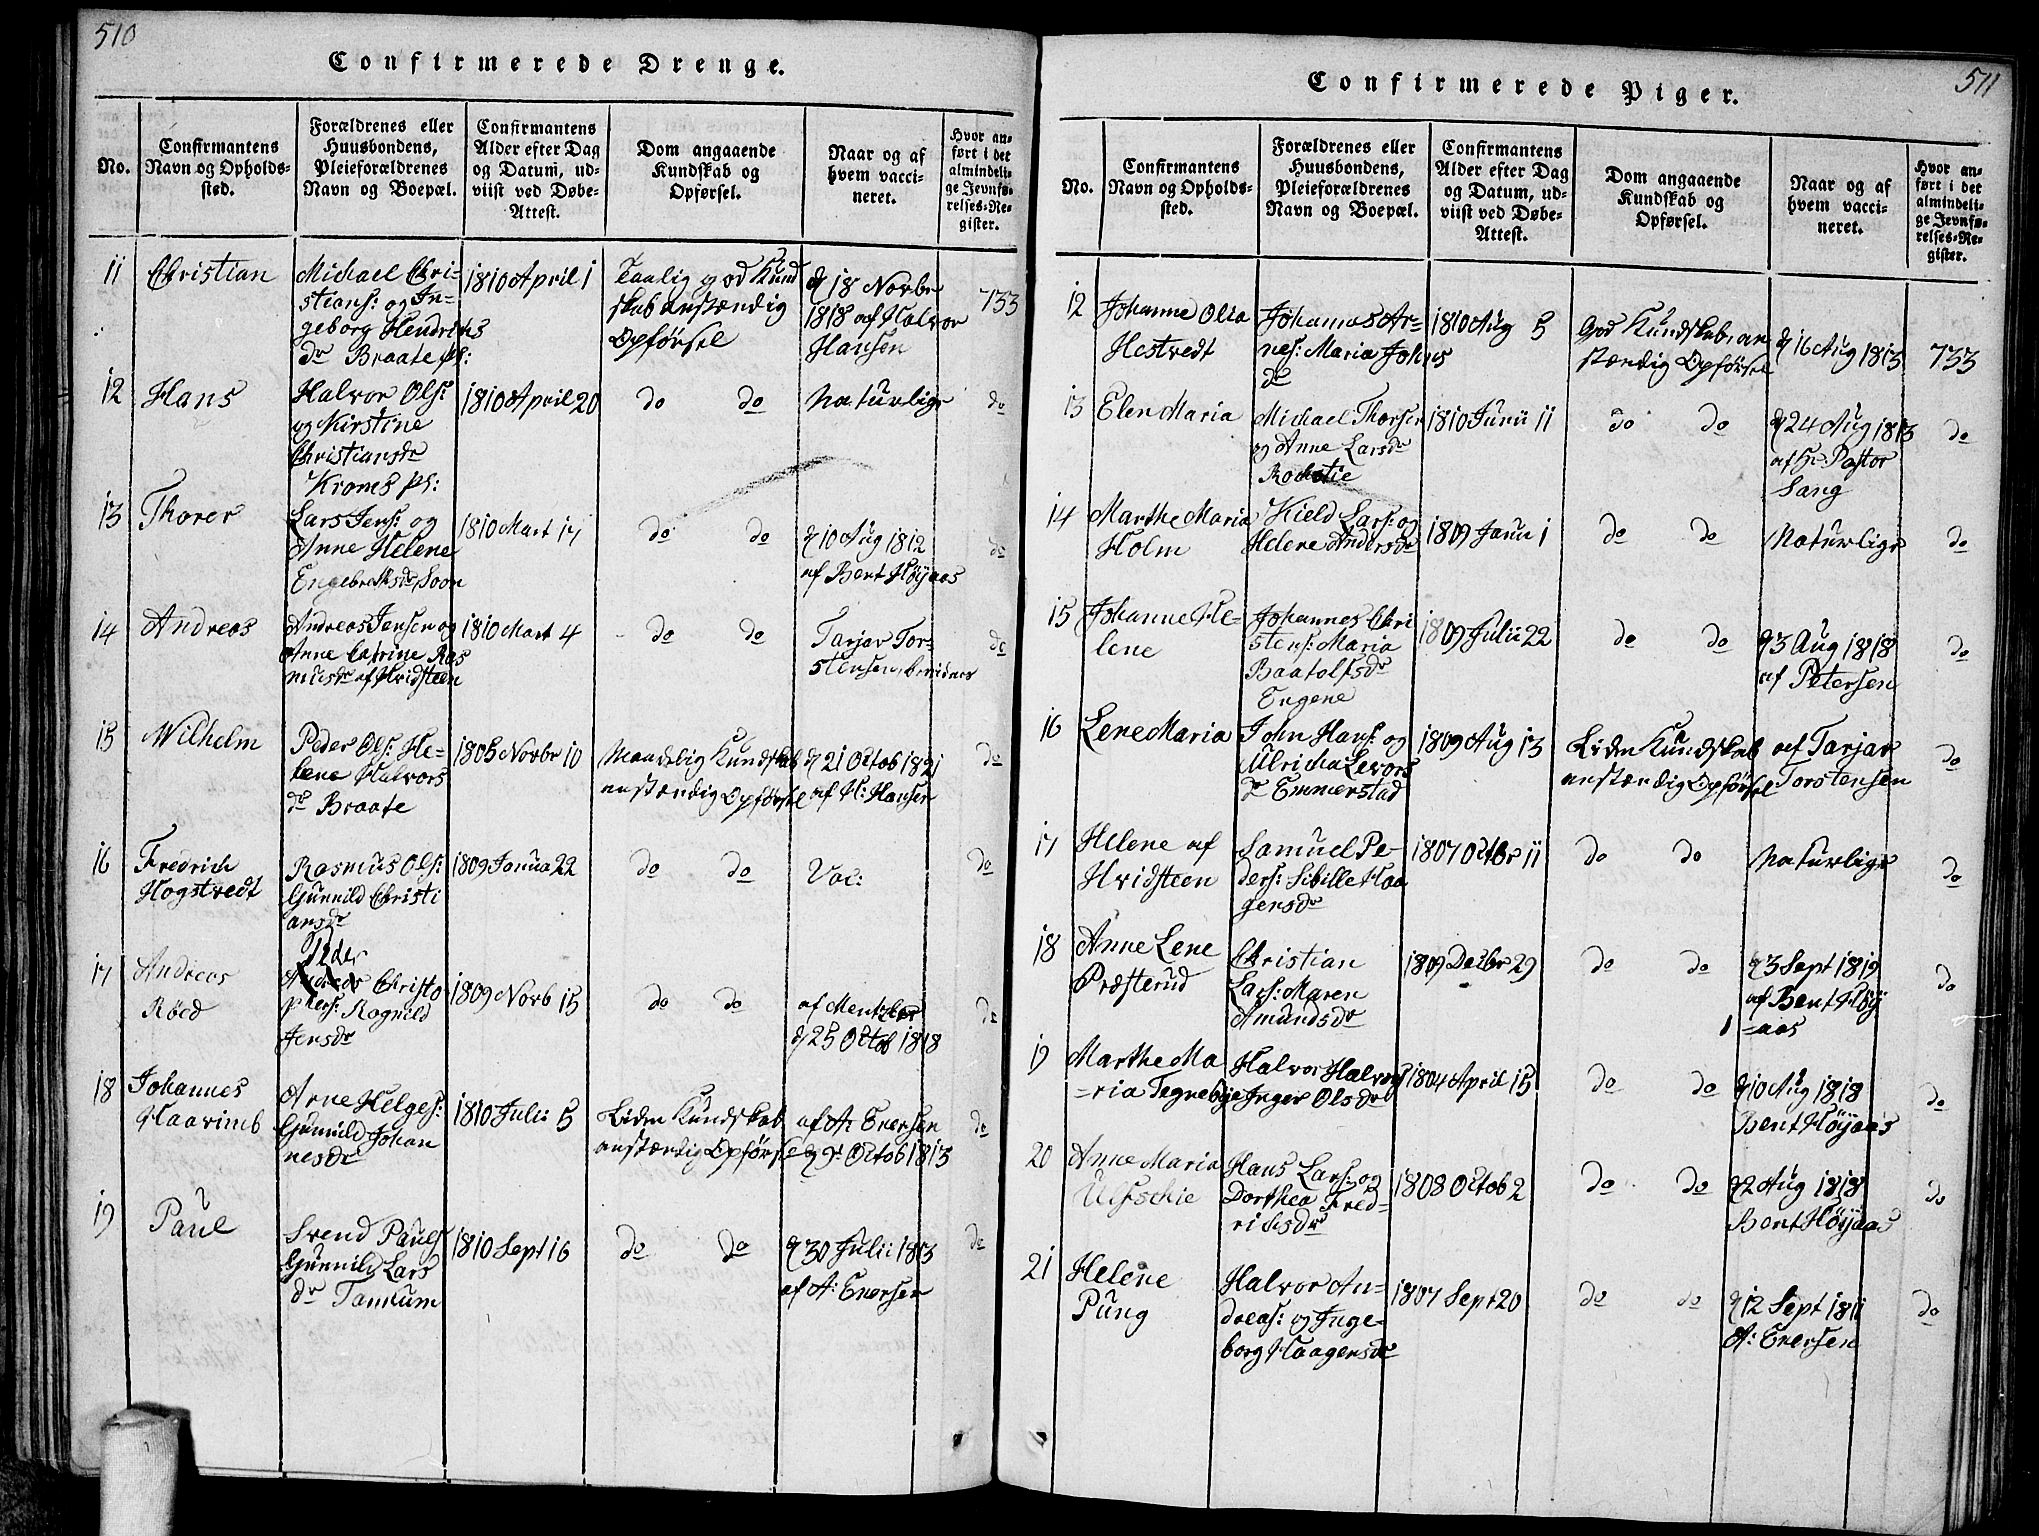 510
Confirmerede Drenge.
No.
Confirmantens
Navn og Opholds-
sted.
Forældrenes eller
Huusbondens,
Pleieforældrenes
Navn og Boepæl.
Confirmantens
Alder efter Dag
og Datum, ud-
viist ved Døbe-
Attest.
Dom angaaende
Kundskab og
Opførsel.
Naar og af
hvem vacci-
neret.
Hvor an-
ført i det
almindeli-
ge Jevnfø-
relses-Re-
gister.
11 Christian
Michael Chri-
stians: og In-
geborg Hendriks
dr Braate pl:
1810 April 1
Taalig god Kund
skab anstændig
Opførsel
d 18 Novbr
1818 af Halvor
Hansen
733
12 Hans
Halvor Ols:
og Kirstine
Christiansdr
Kroms pl:
1810 April 20
do do
Naturlige
do
13 Thorer
Lars Jens: og
Anne Helene
Engebrethsdr Soon
1810 Mart 17
do do
d 10 Aug 1812
af Bent Høyaas
do
14 Andreas
Andreas Jensen og
Anne Catrine Ras
musdr af Hvidsteen
1810 Mart 4
do do
Tarjar Tor-
stensen
do
15 Wilhelm
Peder Ols: He-
lene Halvors
dr Braate
1805 Novbr 10
Maadelig Kundskab
anstændig Opførsel
d 21 Octob 1821
af H: Hansen
do
16 Fredrich
Hogstvedt
Rasmus Ols:
Gunnild Christi
ansdr
1809 Janua 22
do do
Vac:
do
17 Andreas
Röed
Peder
Andreas Christo
phers: Ragnild
Jensdr
1809 Novb 15
do do
af Mentzler
d 25 Octob 1818
do
18 Johannes
Haavimb
Arne Helges:
Gunnild Johan
nesdr
1810 Julii 5
Liden Kundskab
anstændig Opførsel
af A: Enersen
d 9 Octob 1813
do
19 Paul
Svend Pauls
Gunnild Lars
dr Tannum
1810 Sept 16
do do
d 30 Julii 1813
af A: Enersen
do
511
Confirmerede Piger.
No.
Confirmantens
Navn og Opholds-
sted.
Forældrenes eller
Huusbondens,
Pleieforældrenes
Navn og Boepæl.
Confirmantens
Alder efter Dag
og Datum, ud-
viist ved Døbe-
Attest.
Dom angaaende
Kundskab og
Opførsel.
Naar og af
hvem vacci-
neret.
Hvor an-
ført i det
almindeli-
ge Jevnfø-
relses-Re-
gister.
12 Johanne Olea
Hestvedt
Johannes Ar-
nes: Maria Johns
dr
1810 Aug 5
God Kundskab, an
stændig Opførsel
d 16 Aug 1813
733
13 Elen Maria
Michael Thorsen
og Anne Larsdr
1810 Junii 11
do do
d 24 Aug 1813
af Hr Pastor
Lang
do
14 Marthe Maria
Holm
Kield Lars: og
Helene Andersdr
1809 Janu 1
do do
Naturlige
do
15 Johanne He-
lene
Johannes Chri
stens: Maria
Baatolfsdr
Engene
1809 Julii 22
do do
d 3 Aug 1818
af Petersen
do
16 Lene Maria
John Hans: og
Ulricha Levors
dr Emmerstad
1809 Aug 13
Liden Kundskab
anstændig Opførsel
af Tarjar
Torstensen
do
17 Helene af
Hvidsteen
Samuel Pe-
ders: Sibille Haa
gensdr
1807 Octbr 11
do do
Naturlige
do
18 Anne Lene
Præsterud
Christian
Lars: Maren
Amundsdr
1809 Decbr 29
do do
d 3 Sept 1819
af Bent Höy
=aas
do
19 Marthe Ma
=ria Tegnebye
Halvor Halvors
Inger Olsdr
1804 April 15
do do
d 10 Aug 1818
Bent Höyaas
do
20 Anne Maria
Hans Lars: og
Dorthea Fred-
richsdr
1808 Octob 2
do do
d 2 Aug 1818
Bent Höyaas
do
21 Helene
Pung
Halvor An-
dreas: og Inge-
borg Haagensdr
1807 Sept 20
do do
d 12 Sept 1811
A: Enersen
do